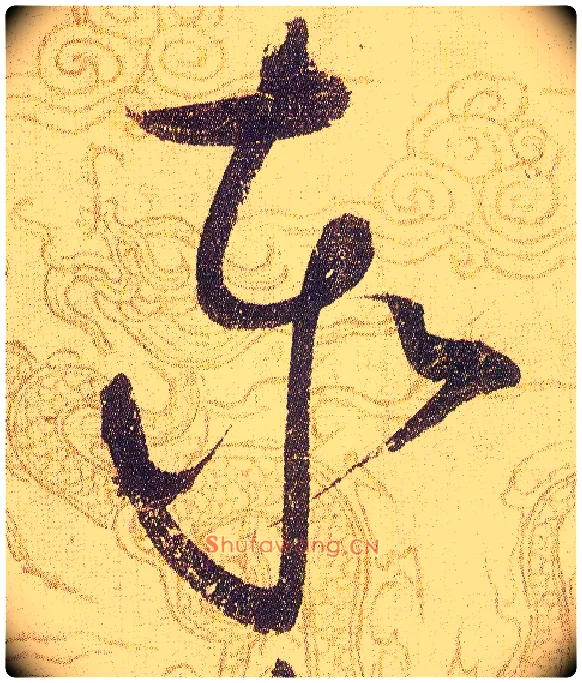 东
Shufawang.CN